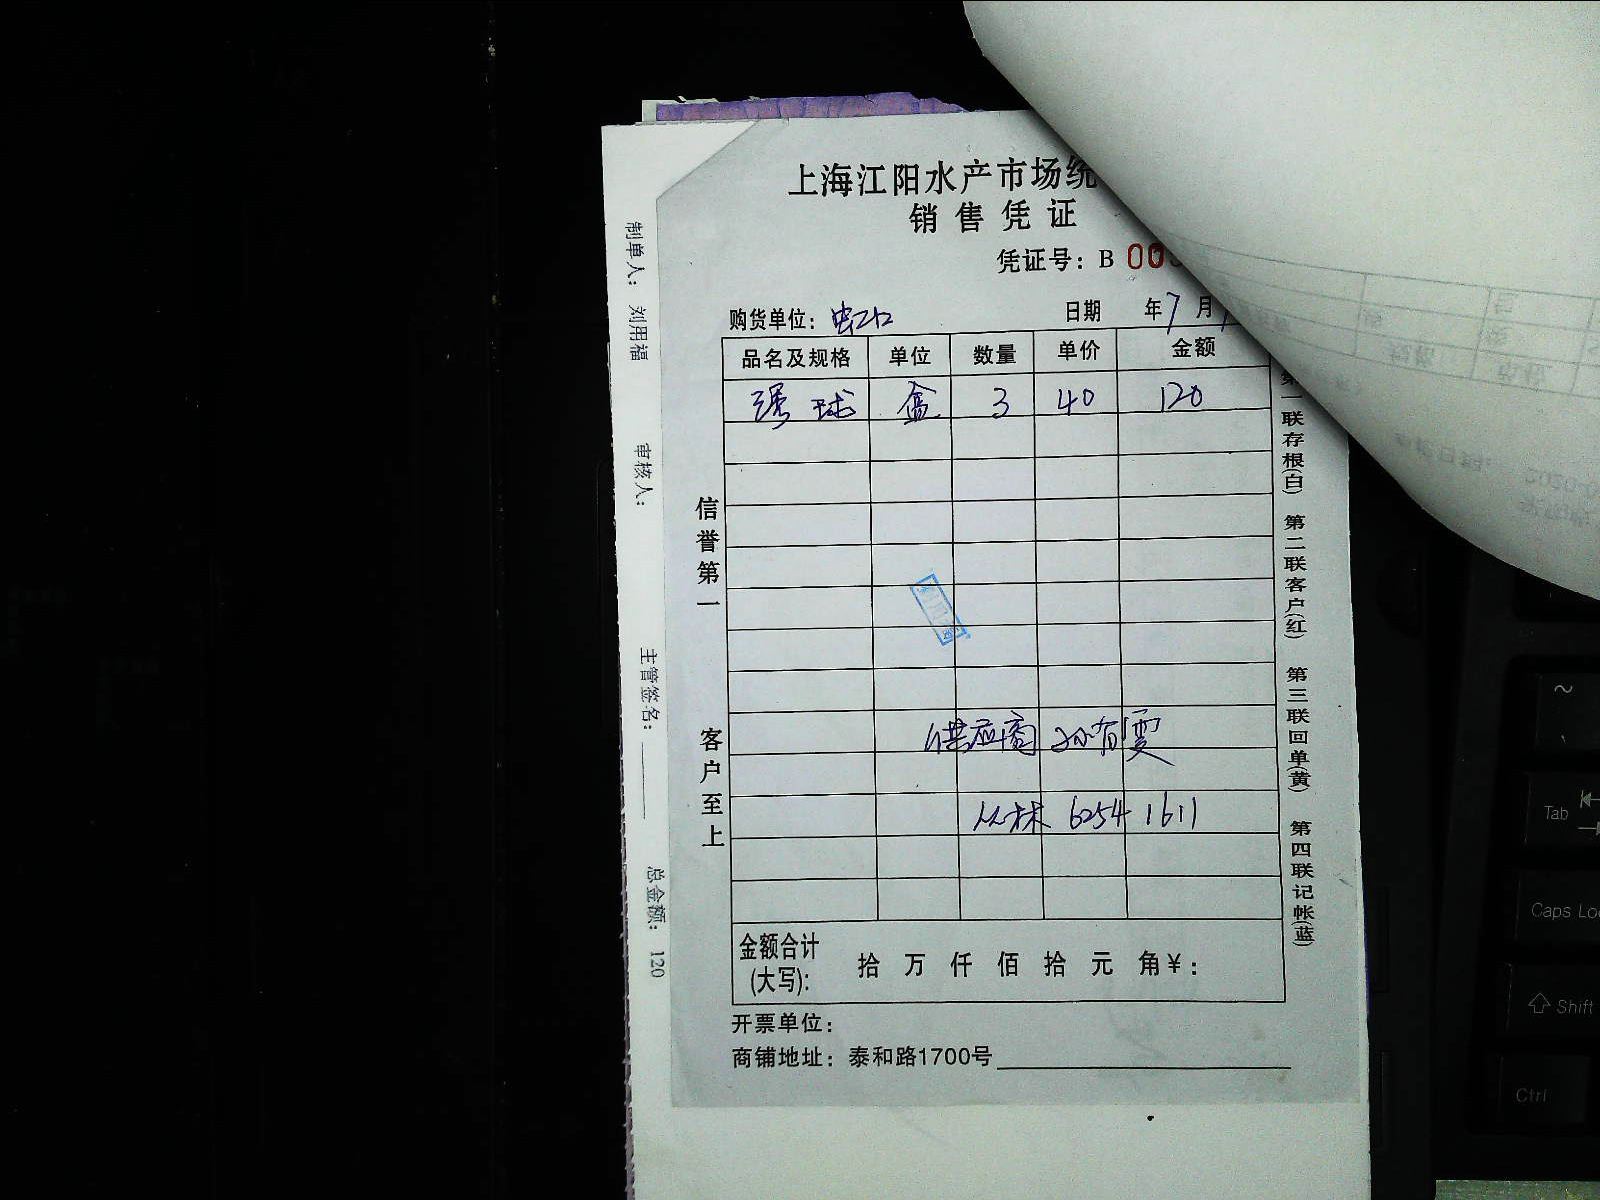 上海江阳水产市场统
销售凭证
凭证号：B 00
购货单位：虹口 日期 年7月
品名及规格 单位 数量 单价 金额
球 盒 3 40 120
供应商 孙有雯
丛林 6254 1611
金额合计(大写)： 拾 万 仟 佰 拾 元 角￥：
开票单位：
商铺地址：泰和路1700号
信誉第一 客户至上
第一联存根(白) 第二联客户(红) 第三联回单(黄) 第四联记帐(蓝)
制单人： 刘用福 审核人： 主管签名： 总金额： 120
~
Tab
Caps Loc
Shift
Ctrl